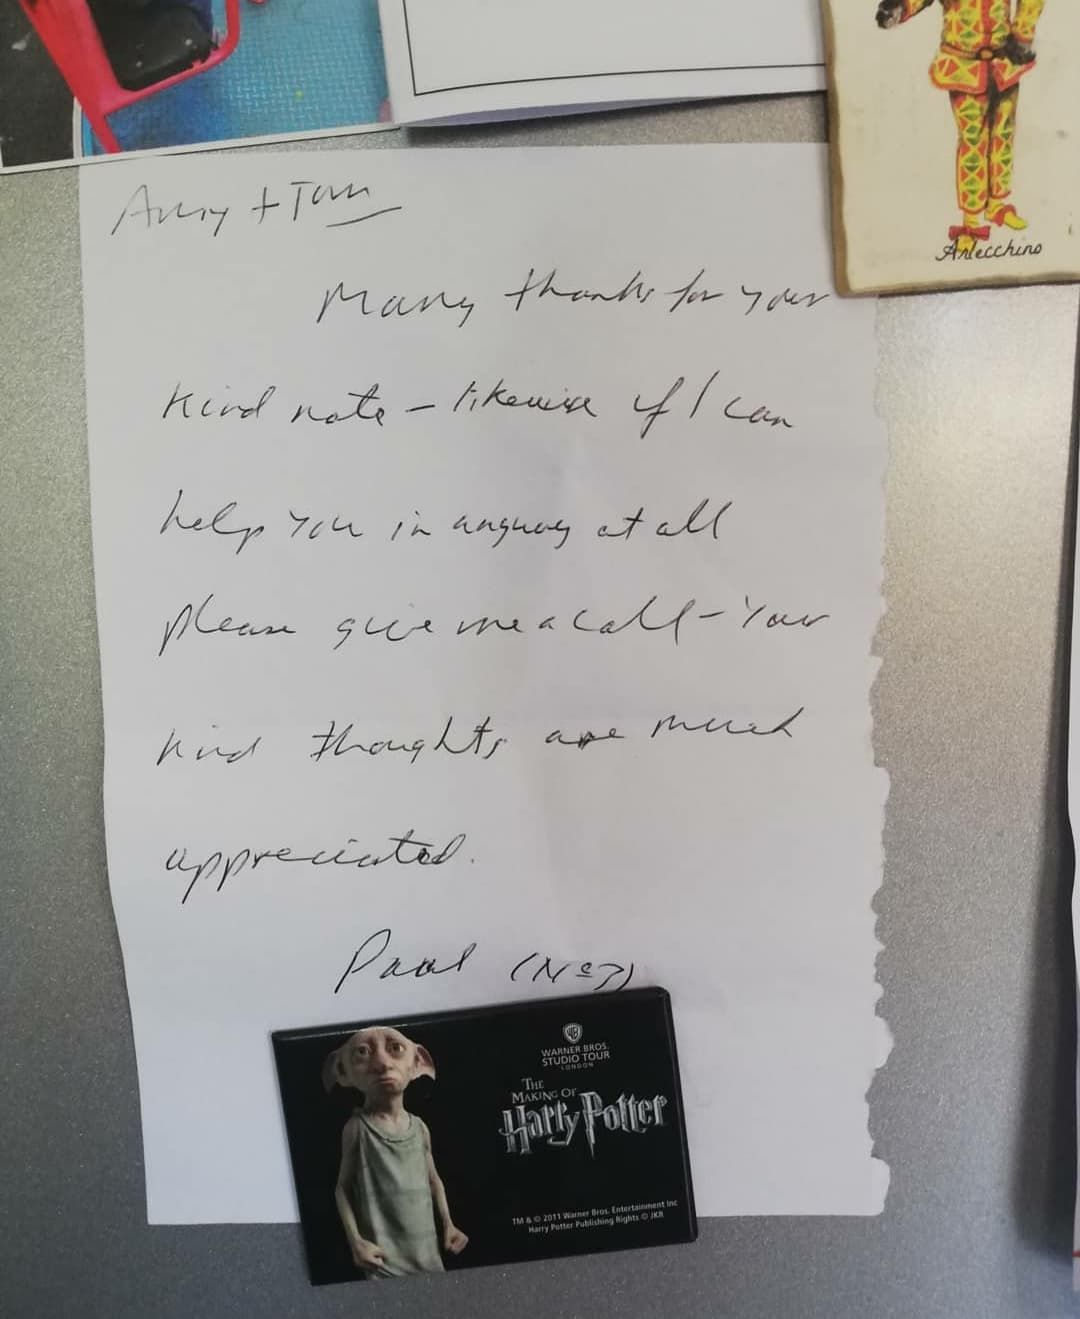 Arlecchino
Amy + Tom
Many thanks for your
kind note - likewise if I can
help you in anyway at all
please give me a call - Your
kind thoughts are much
appreciated.
Paul (Nº7)
WB
WARNER BROS.
STUDIO TOUR
LONDON
THE
MAKING OF
Harry Potter
TM & © 2011 Warner Bros. Entertainment Inc
Harry Potter Publishing Rights © JKR